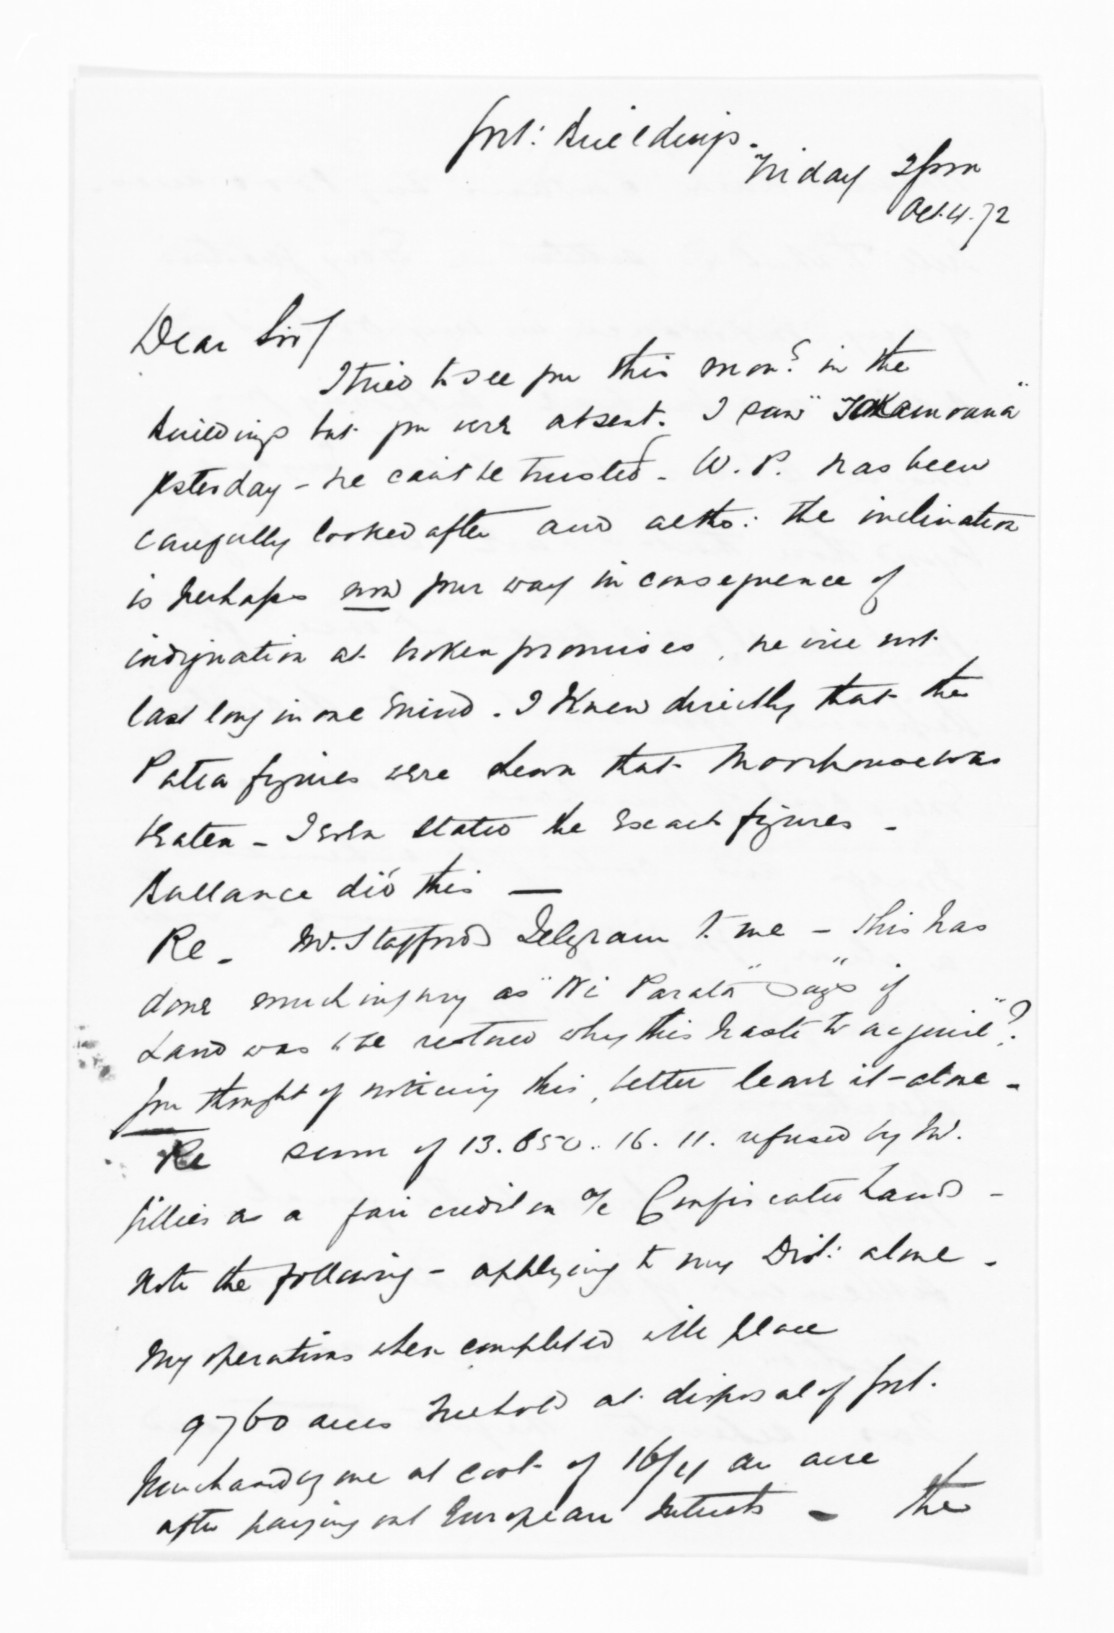 Govt: Buildings.
Friday 2 pm
Oct. 4. 72
Dear Sir/
I tried to see you this morng in the
buildings but you were absent. I saw "Takamoana"
yesterday - he can't be trusted - W. P. has been
carefully looked after and altho: the inclination
is perhaps now your way in consequence of
indignation at broken promises, he will not
last long in one mind. I knew directly that the
Patea figures were shewn that Moorhouse was
beaten - I even stated the exact figures -
Ballance did this —
Re. Mr. Staffords Telegram to me - this has
done much injury as "Wi Parata" says "if
Land was to be restored why this haste to acquire"?
You thought of noticing this, better leave it alone -
Re sum of 13.850.. 16. 11. refused by Mr.
Gillies as a fair credit on a/c Confiscated Lands -
Note the following - applying to my Dist: alone -
My operations when completed will place
9760 acres freehold at disposal of Govt.
Purchased by me at cost of 16/11 an acre
after paying out European Interests - the